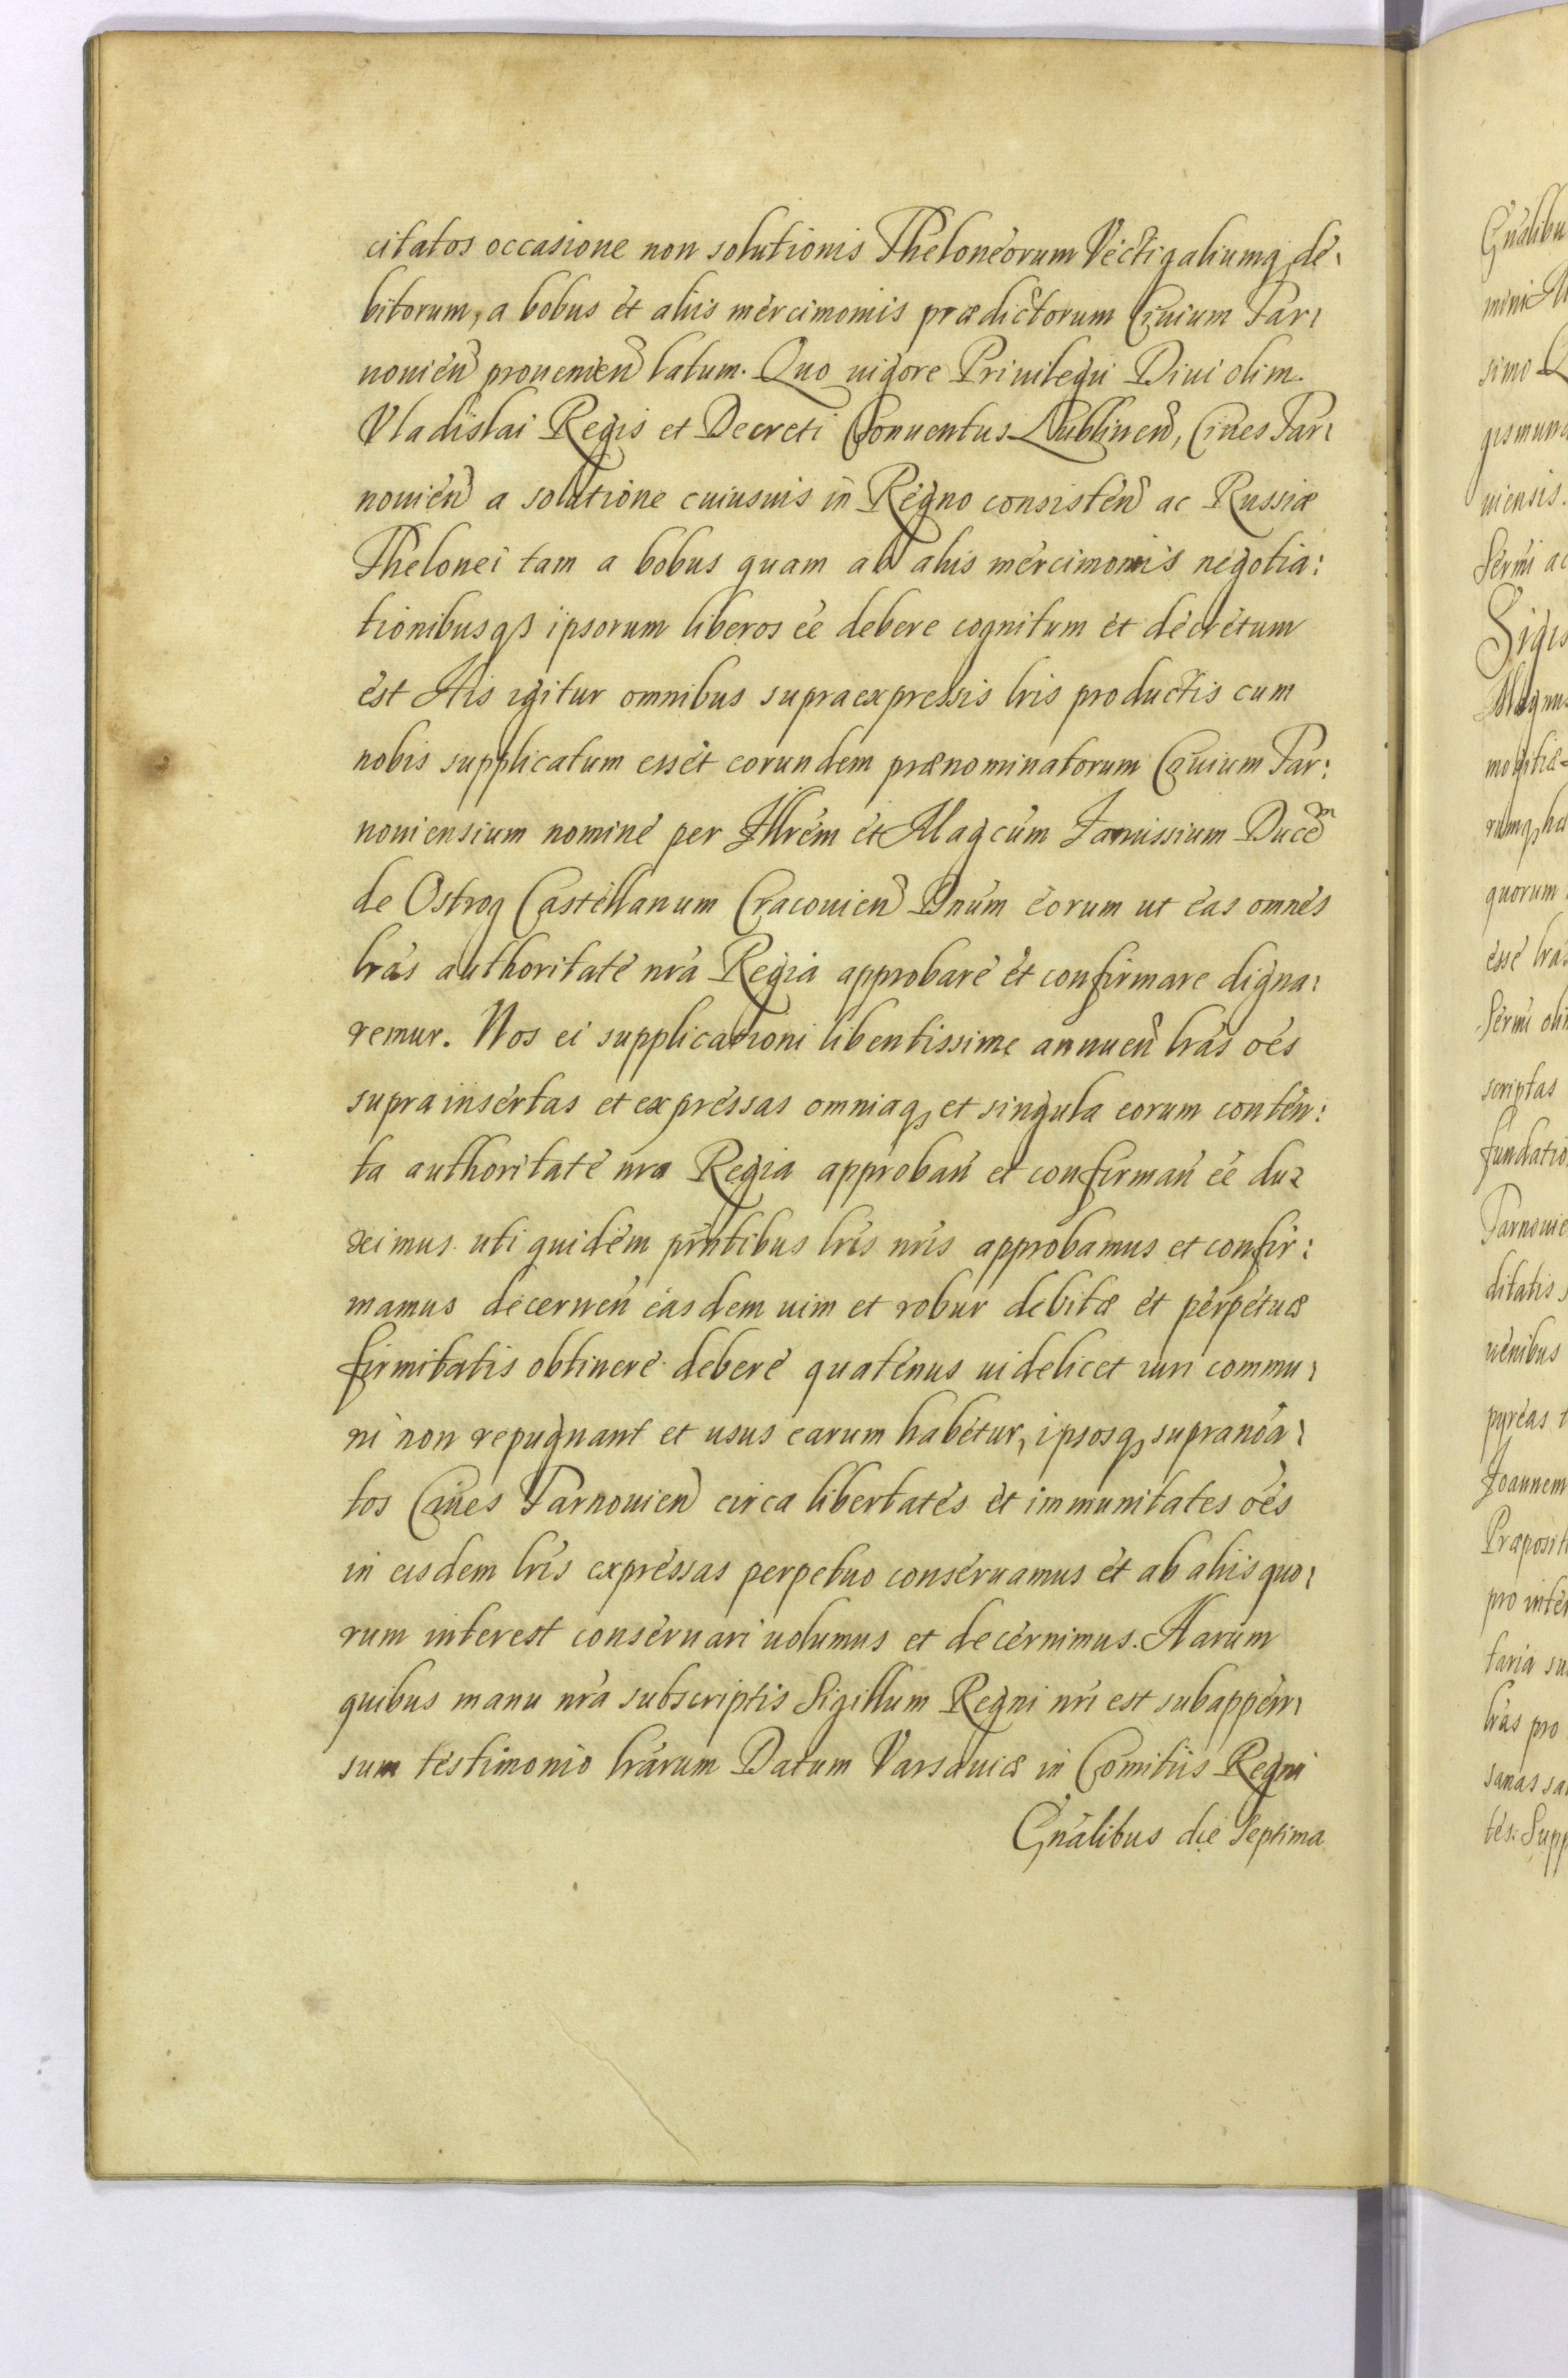 citatos occasione non solutionis Theloneorum Vectigaliumq de-
bitorum, a bobus et alijs mercimonijs prædictorum Ciuium Tar-
nouien prouenien latum. Quo uigore Priuilegij Diui olim
Vladislai Regis et Decreti Conuentus Lublinen, Ciues Tar-
nouien a solutione cuiusuis in Regno consisten ac Russiæ
Thelonei tam a bobus quam ab alijs mercimonijs negotia:
tionibusq ipsorum liberos ee debere cognitum et decretum
est His igitur omnibus supraexpressis lris productis cum
nobis supplicatum esset eorundem prænominatorum Ciuium Tar:
nouiensium nomine per Illrem et Magcum Janussium Ducem
de Ostrog Castellanum Cracouien Dnum eorum ut eas omnes
lras authoritate nra Regia approbare et confirmare digna:
remur. Nos ei supplicationi libentissime annuen lras oes
supra insertas et expressas omniaq et singula eorum conten:
ta authoritate nra Regia approban et confirman ee du-
ximus uti quidem pntibus lris nris approbamus et confir:
mamus decernen easdem uim et robur debitæ et perpetuæ
firmitatis obtinere debere quatenus uidelicet iuri commu-
ni non repugnant et usus earum habetur, ipsosq supranoa-
tos Ciues Tarnouien circa libertates et immunitates oes
in eisdem lris expressas perpetuo conseruamus et ab alijs quo-
rum interest conseruari uolumus et decernimus. Harum
quibus manu nra subscriptis Sigillum Regni nri est subappen-
sum testimonio lrarum Datum Varsauiæ in Comitijs Regni
Gnalibus die Septima
Gnalibu
simo
uiensis.
Sermi ac
Sigis
Magnus
quorum
esse lras
Sermi oli
scriptas
fundatio
Tarnouie
ditatis
pyreas
Joannem
Præposit
pro inte
taria su
lras pro
sanas sa
tes. Supp